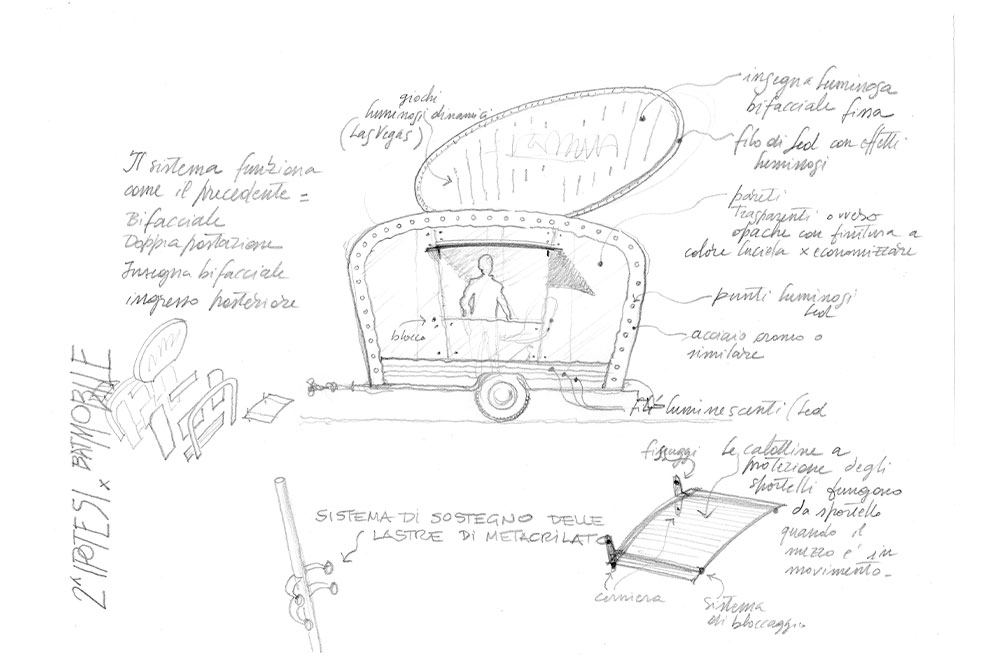 giochi
luminosi dinamici
(Las Vegas)
insegna luminosa
bifacciale fissa
filo di Led con effetti
luminosi
pareti
trasparenti ovvero
opache con finitura a
colore lucida x economizzare
punti luminosi
Led
acciaio cromo o
similare
fili luminescenti (Led
blocco
Il sistema funziona
come il precedente =
Bifacciale
Doppia postazione
Insegna bifacciale
ingresso posteriore
2^ IPOTESI x BATMOBILE
SISTEMA DI SOSTEGNO DELLE
LASTRE DI METACRILATO
fissaggi
Le calottine a
protezione degli
sportelli fungono
da sportello
quando il
mezzo e' in
movimento-
cerniera
sistema
di bloccaggio